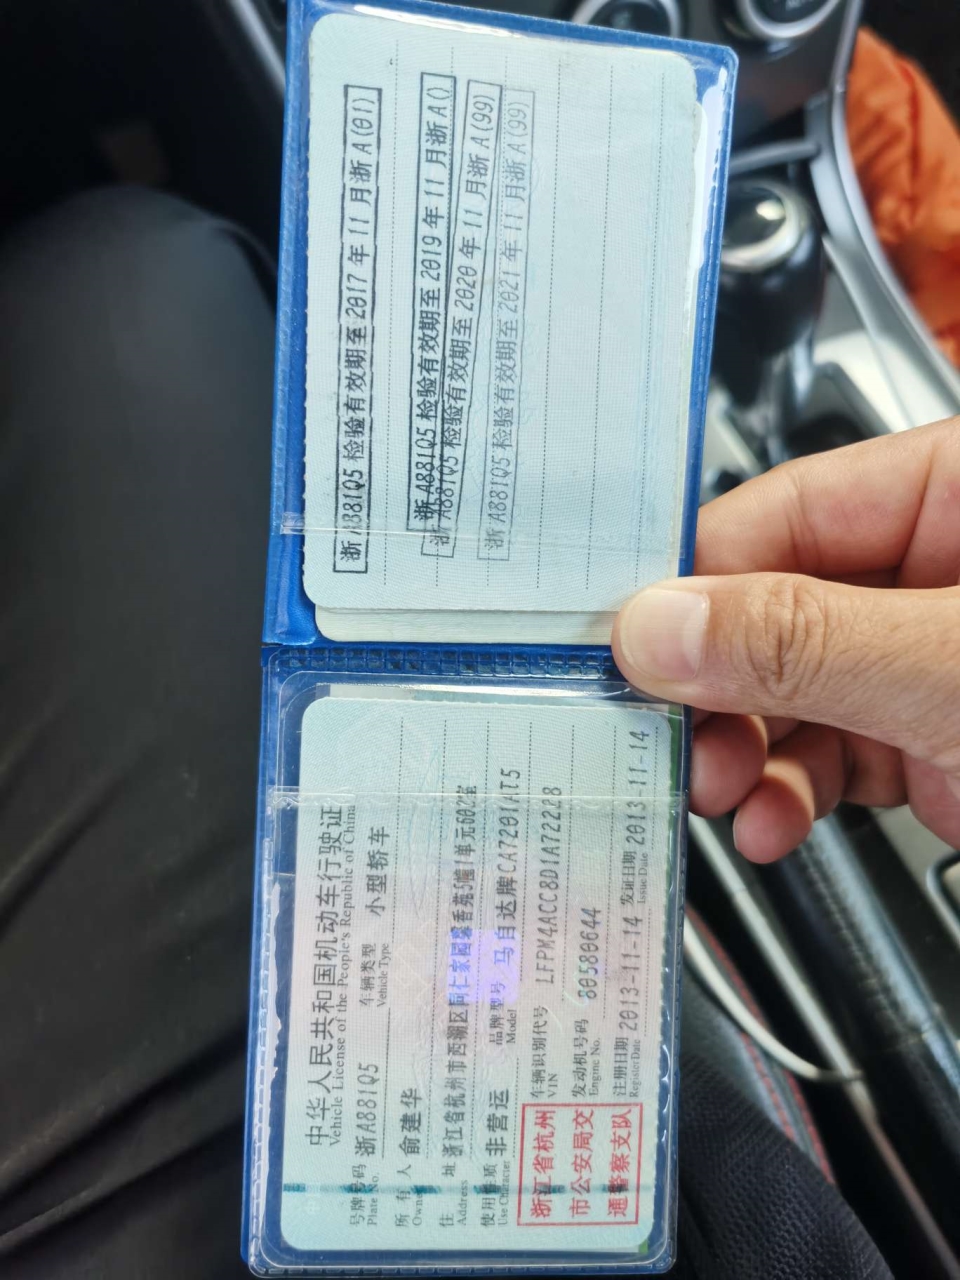 浙A881Q5 检验有效期至2017年11月浙A(01)
浙A881Q5 检验有效期至2019年11月浙A()
浙A881Q5 检验有效期至2020年11月浙A(99)
浙A881Q5 检验有效期至2021年11月浙A(99)
中华人民共和国机动车行驶证
Vehicle License of the People's Republic of China
号牌号码 浙A881Q5 车辆类型 小型轿车
Plate No. Vehicle Type
所有人 俞建华
Owner
住址 浙江省杭州市西湖区阿仁家园馨香苑5幢1单元602室
Address
使用性质 非营运 品牌型号 马自达牌CA7201AT5
Use Character Model
车辆识别代号 LFPM4ACC8D1A72228
VIN
发动机号码 80580644
Engine No.
注册日期 2013-11-14 发证日期 2013-11-14
Register Date Issue Date
浙江省杭州
市公安局交
通警察支队